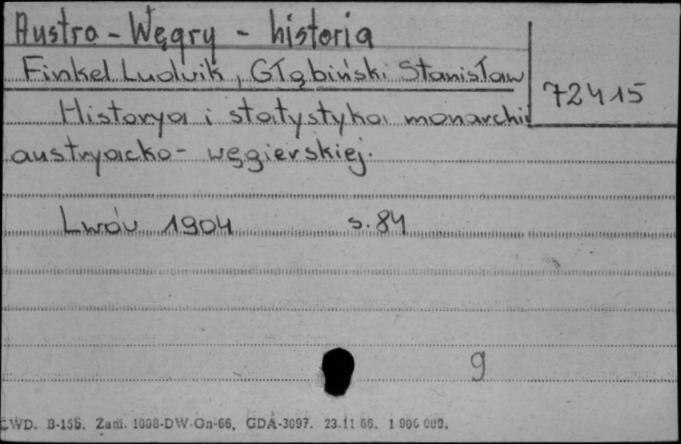 Austro-Węgry - historia
Finkel Ludwik, Głąbiński Stanisław
72415
Historya i statystyka monarchii
austryacko-węgierskiej.
Lwów 1904 s. 84
9
CWD. B-156. Zam. 1008-DW-On-66. GDA-3097. 23.11 66. 1 906 000.